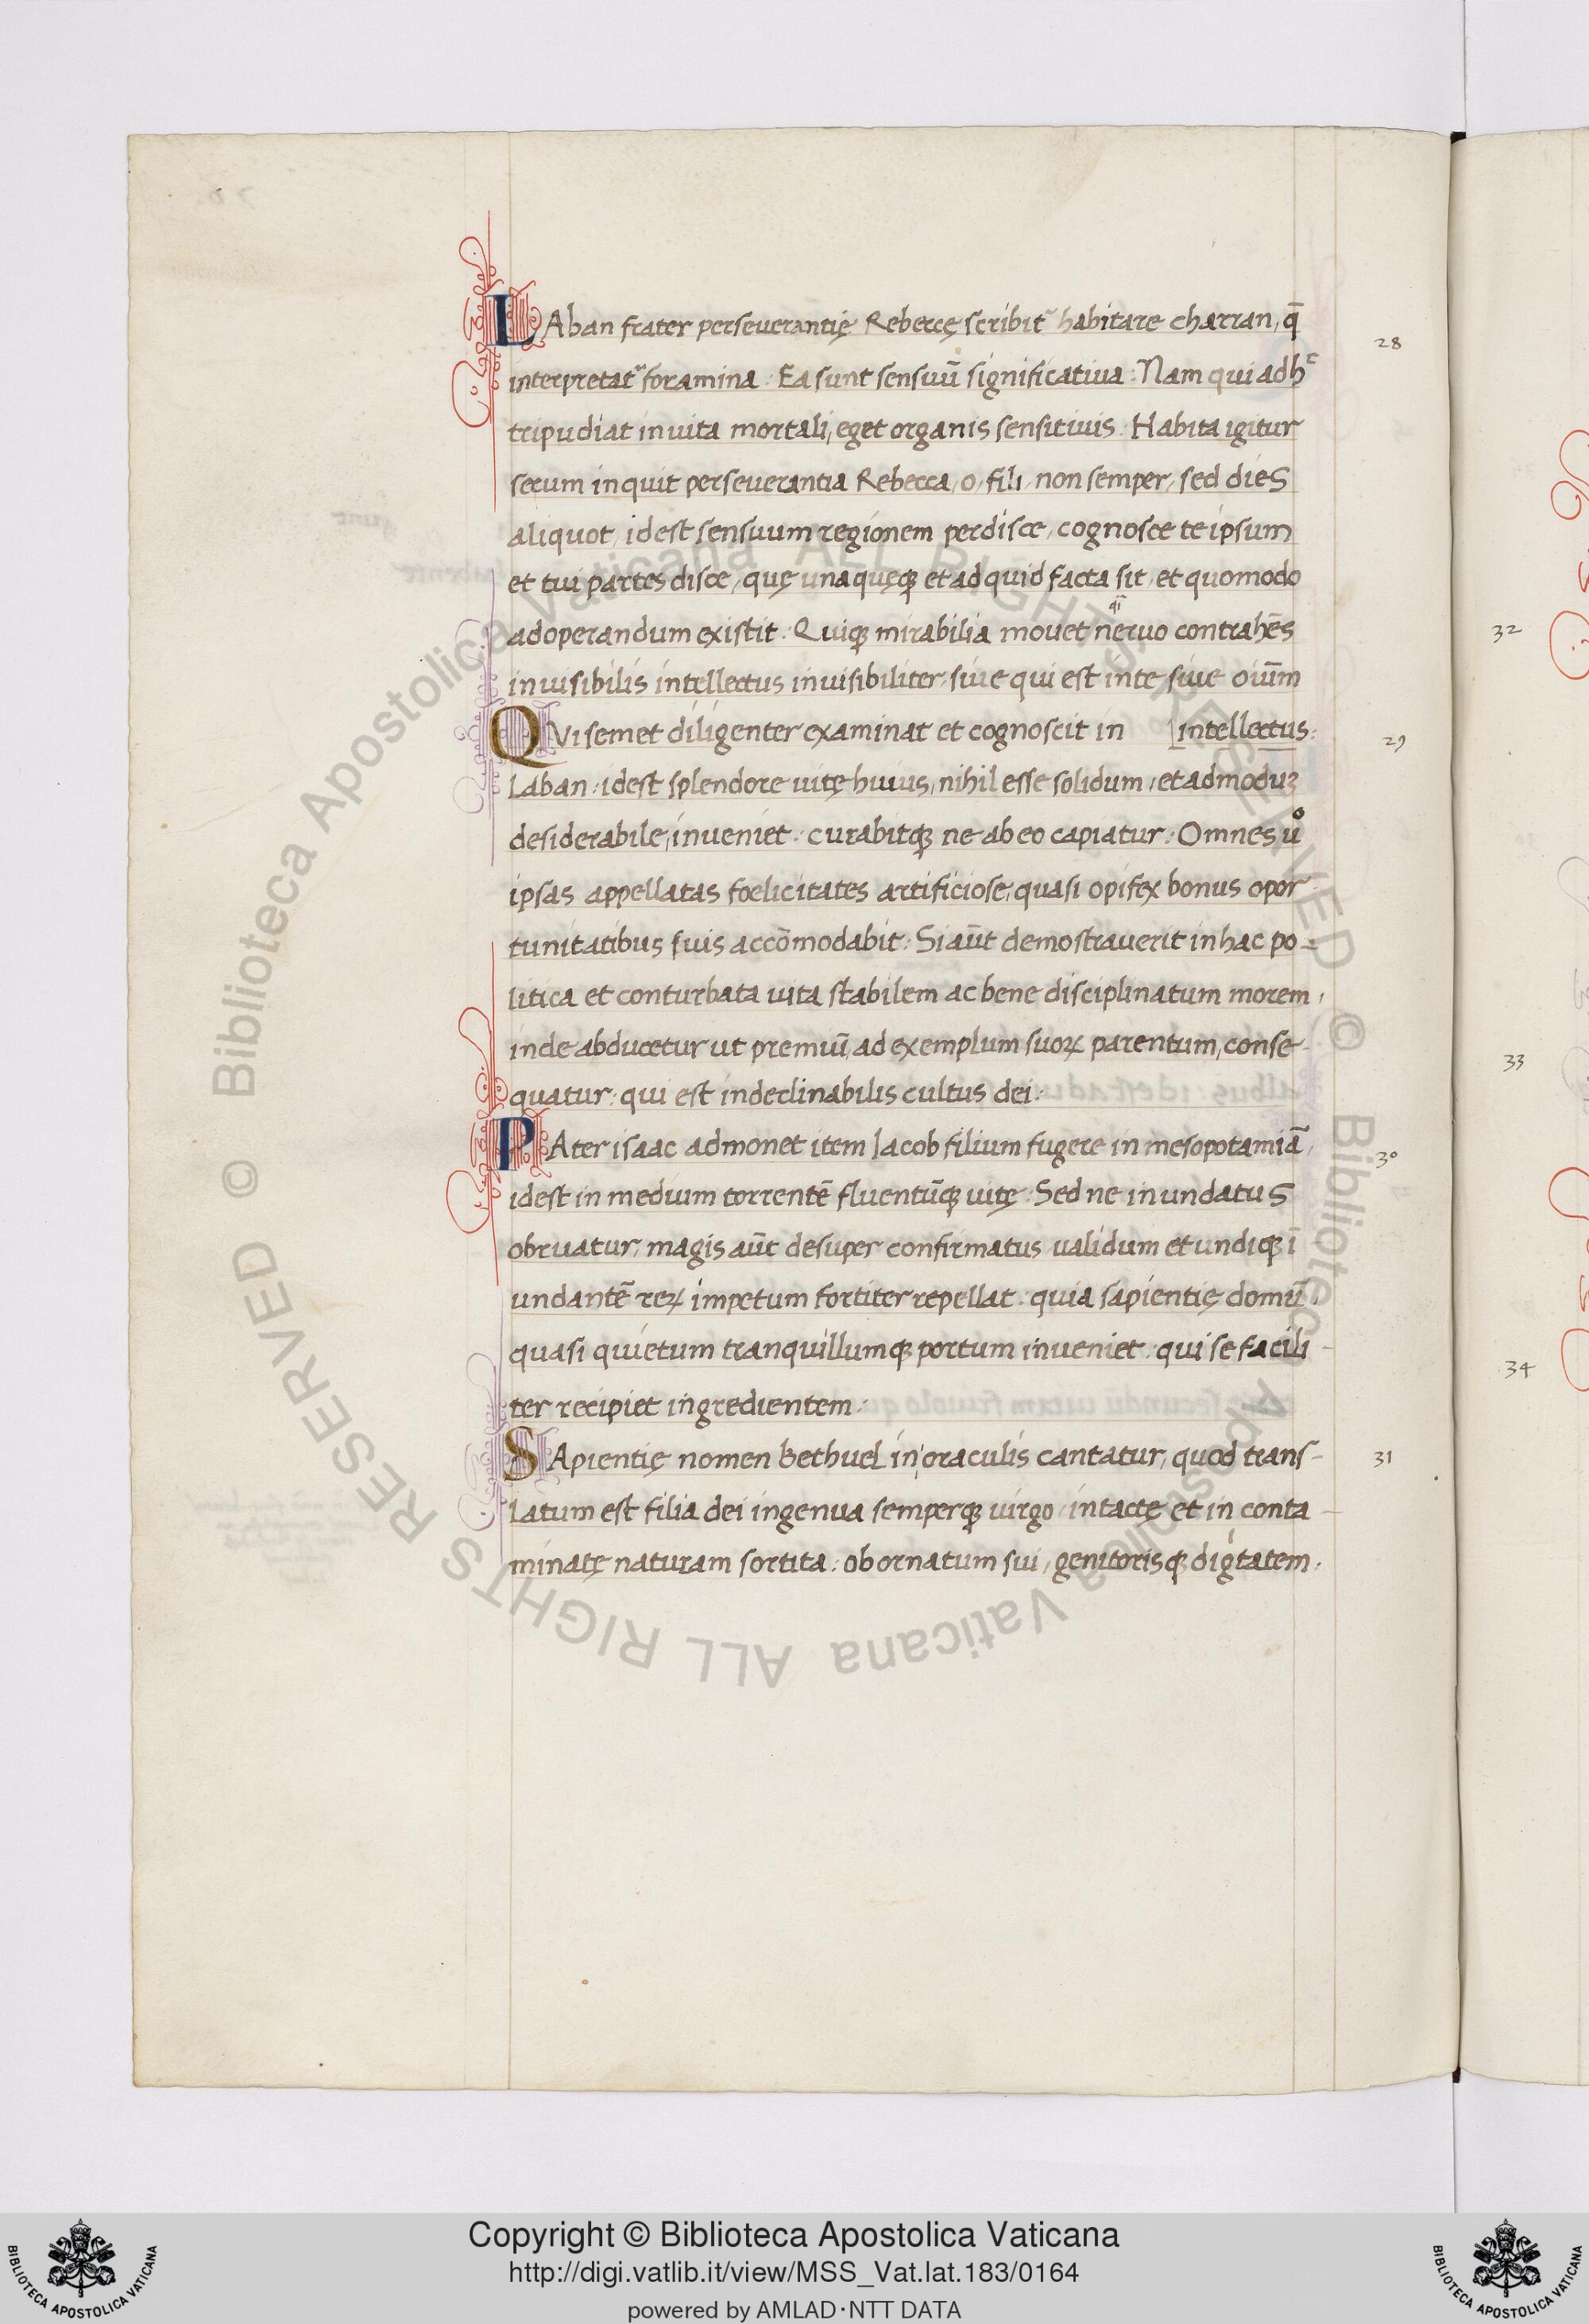 LAban frater perseuerantię Rebeccę scribit᷑ habitare charran, q̄
28
interpretat᷑ foramina : Ea sunt sensuū significatiua : Nam qui adhᶜ
tripudiat in uita mortali, eget organis sensitiuis : Habita igitur
secum inquit perseuerantia Rebecca, o, fili, non semper, sed dies
aliquot, idest sensuum regionem perdisce, cognosce te ipsum
et tui partes disce, quę unaquęqꝫ et ad quid facta sit, et quomodo
ad operandum existit : Quiqꝫ mirabilia mouet q̄i neruo contrahēs
inuisibilis intellectus inuisibiliter, siue qui est in te siue oiūm
QVi semet diligenter examinat et cognoscit in [intellectus :
29
Laban : idest splendore uitę huius, nihil esse solidum, et admoduꝫ
desiderabile, inueniet : curabitqꝫ ne ab eo capiatur : Omnes uͦ
ipsas appellatas foelicitates artificiose, quasi opifex bonus opor
tunitatibus suis accōmodabit : Si aūt demostrauerit in hac po-
litica et conturbata uita stabilem ac bene disciplinatum morem,
inde abducetur ut premiū, ad exemplum suoꝝ parentum, conse-
quatur : qui est indeclinabilis cultus dei :
PAter isaac admonet item Jacob filium fugere in mesopotamiā,
30
idest in medium torrentē fluentūqꝫ uitę : Sed ne inundatus
obruatur, magis aūt desuper confirmatus ualidum et undiqꝫ ī
undantē reꝝ impetum fortiter repellat : quia sapientię domū
quasi quietum tranquillumqꝫ portum inueniet : qui se facili-
ter recipiet ingredientem :
SApientię nomen bethuel in oraculis cantatur, quod trans-
31
latum est filia dei ingenua semperqꝫ uirgo, intactę et in conta-
minatę naturam sortita : ob ornatum sui, genitorisqꝫ digͥtatem :
32
33
34
Copyright © Biblioteca Apostolica Vaticana
http://digi.vatlib.it/view/MSS_Vat.lat.183/0164
powered by AMLAD·NTT DATA
BIBLIOTECA APOSTOLICA VATICANA
BIBLIOTECA APOSTOLICA VATICANA
© Biblioteca Apostolica Vaticana ALL RIGHTS RESERVED © Biblioteca Apostolica Vaticana ALL RIGHTS RESERVED